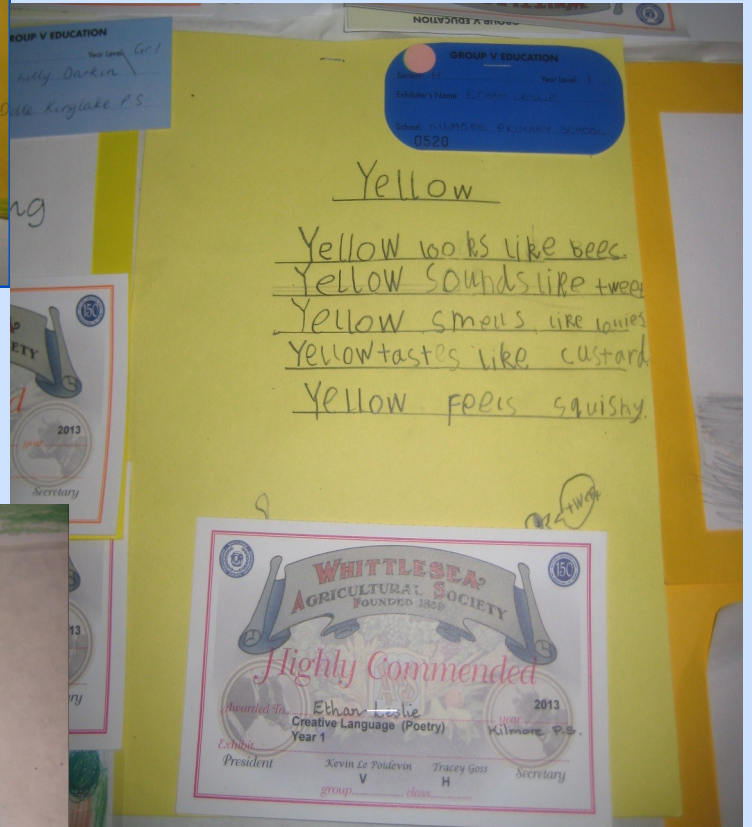 GROUP V EDUCATION
ROUP V EDUCATION
Year Level Gr 1
Darkin
Kinglake P.S
GROUP V EDUCATION
Section H Year Level 1
Exhibitor's Name ETHAN LESLIE
School KILMORE PRIMARY SCHOOL
0520
ng
Yellow
Yellow looks like bees.
Yellow sounds like tweet
Yellow smells like
Yellow tastes like custard
Yellow feels squishy.
150
ETY
d
year
2013
Secretary
13
ry
WHITTLESEA
AGRICULTURAL SOCIETY
FOUNDED 1859
150
Highly Commended
Awarded To Ethan Leslie
2013
year
Creative Language (Poetry)
Kilmore P.S.
Year 1
Exhibit
President
Kevin Le Poidevin Tracey Goss
Secretary
V H
group class